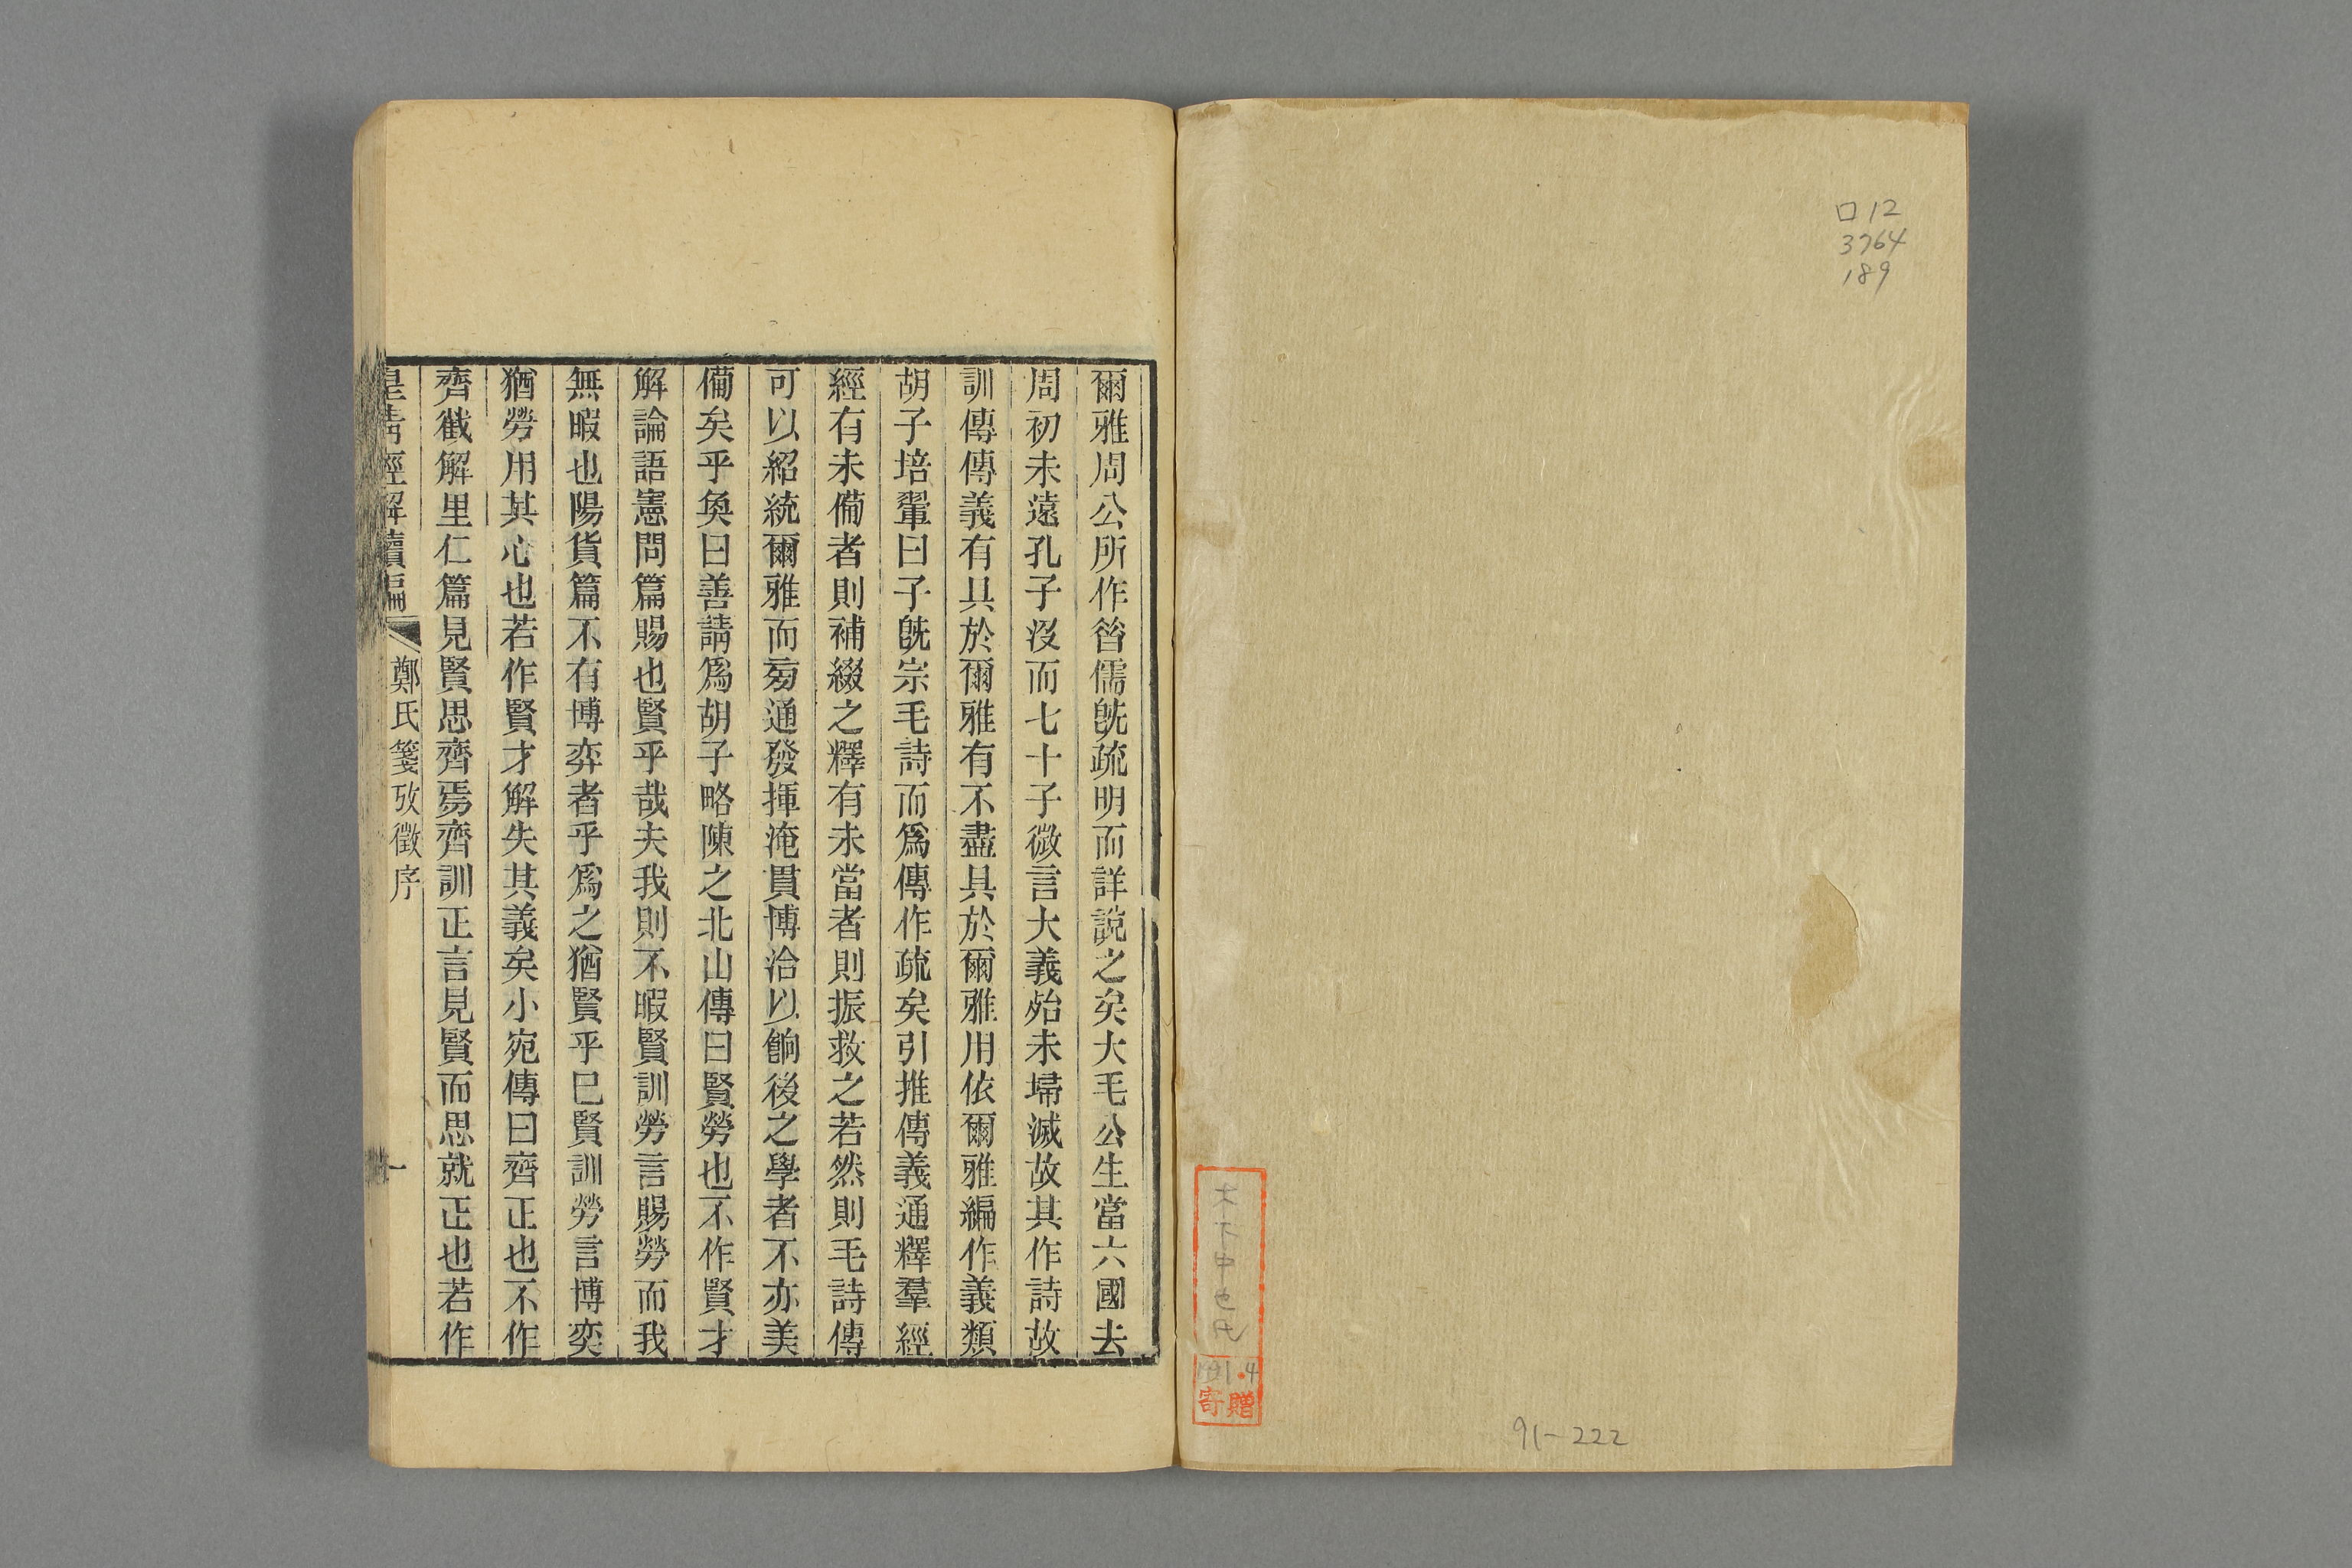 ロ12
3764
189
木下中也氏
1991.4
寄贈
91-222
爾雅周公所作昝儒旣疏明而詳說之矣大毛公生當六國去
周初未遠孔子沒而七十子微言大義殆未埽滅故其作詩故
訓傳傳義有具於爾雅有不盡具於爾雅用依爾雅編作義類
胡子培翬曰子旣宗毛詩而爲傳作疏矣引推傳義通釋羣經
經有未僃者則補綴之釋有未當者則振救之若然則毛詩傳
可以紹統爾雅而㫄通發揮淹貫博洽以餉後之學者不亦美
僃矣乎奐曰善請爲胡子略陳之北山傳曰賢勞也不作賢才
解論語憲問篇賜也賢乎哉夫我則不暇賢訓勞言賜勞而我
無暇也陽貨篇不有博弈者乎爲之猶賢乎已賢訓勞言博奕
猶勞用其心也若作賢才解失其義矣小宛傳曰齊正也不作
齊截解里仁篇見賢思齊焉齊訓正言見賢而思就正也若作
皇淸經解續編 鄭氏箋攷徵序 一